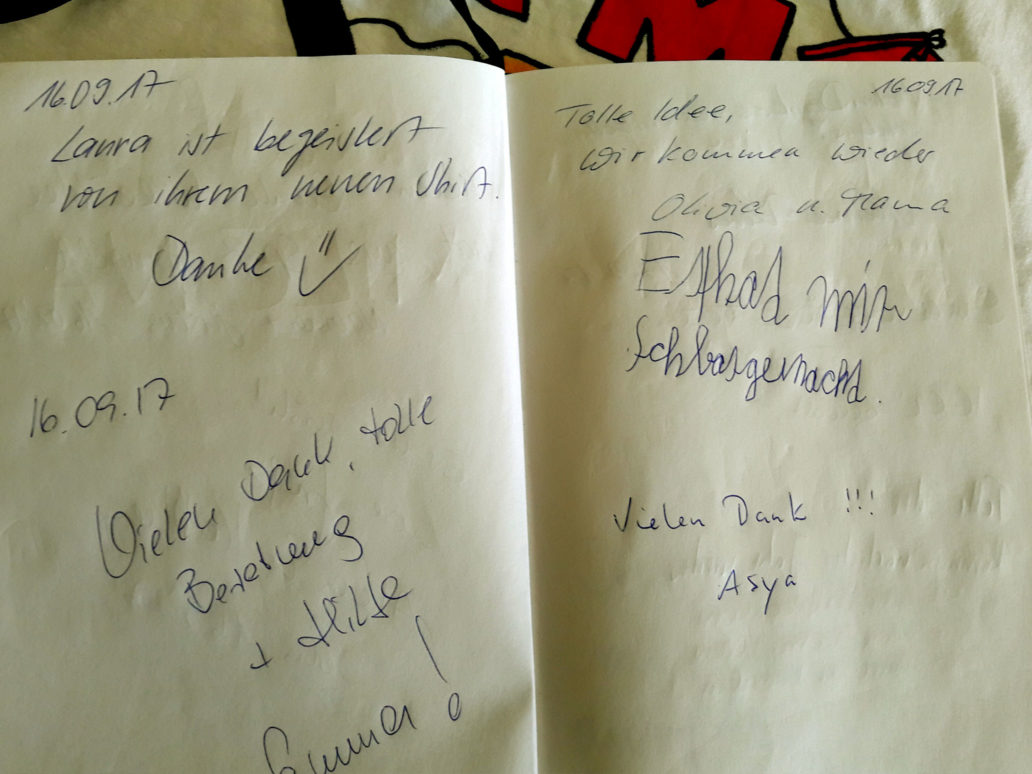 16.09.17
Laura ist begeistert
von ihrem neuen Shirt.
Danke
16.09.17
Vielen Dank, tolle
Beratung
+ Hilfe
!
16.09.17
Tolle Idee,
wir kommen wieder
Olivia u. Mama
Es hat mir
Schbasgemacht.
Vielen Dank !!!
Asya